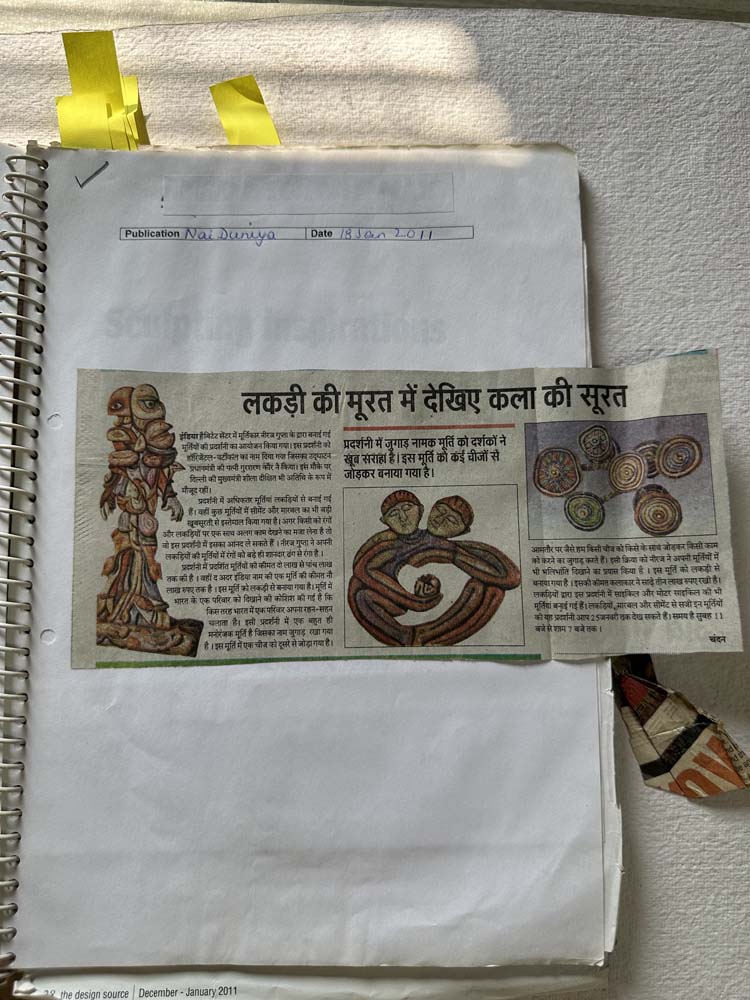 Publication Nai Duniya Date 18 Jan 2011
Sculpting Inspirations
लकड़ी की मूरत में देखिए कला की सूरत
इंडिया हैबिटेट सेंटर में मूर्तिकार नीरज गुप्ता के द्वारा बनाई गई
मूर्तियों की प्रदर्शनी का आयोजन किया गया। इस प्रदर्शनी को
हॉरिजेंटल-वर्टीकल का नाम दिया गया जिसका उद्घाटन
प्रधानमंत्री की पत्नी गुरशरण कौर ने किया। इस मौके पर
दिल्ली की मुख्यमंत्री शीला दीक्षित भी अतिथि के रूप में
मौजूद रहीं।
प्रदर्शनी में अधिकतर मूर्तियां लकड़ियों से बनाई गई
हैं। वहीं कुछ मूर्तियों में सीमेंट और मारबल का भी बड़ी
खूबसूरती से इस्तेमाल किया गया है। अगर किसी को रंगों
और लकड़ियों पर एक साथ अलग काम देखने का मजा लेना है तो
वो इस प्रदर्शनी में इसका आनंद ले सकते हैं। नीरज गुप्ता ने अपनी
लकड़ियों की मूर्तियों में रंगों को बड़े ही शानदार ढंग से रंगा है।
प्रदर्शनी में प्रदर्शित मूर्तियों की कीमत दो लाख से पांच लाख
तक की है। वहीं द अदर इंडिया नाम की एक मूर्ति की कीमत नौ
लाख रुपए तक है। इस मूर्ति को लकड़ी से बनाया गया है। मूर्ति में
भारत के एक परिवार को दिखाने की कोशिश की गई है कि
किस तरह भारत में एक परिवार अपना रहन-सहन
चलाता है। इसी प्रदर्शनी में एक बहुत ही
मनोरंजक मूर्ति है जिसका नाम जुगाड़ रखा गया
है। इस मूर्ति में एक चीज को दूसरे से जोड़ा गया है।
प्रदर्शनी में जुगाड़ नामक मूर्ति को दर्शकों ने
खूब सराहा है। इस मूर्ति को कई चीजों से
जोड़कर बनाया गया है।
आमतौर पर जैसे हम किसी चीज को किसी के साथ जोड़कर किसी काम
को करने का जुगाड़ करते हैं। इसी क्रिया को नीरज ने अपनी मूर्तियों में
भी भलिभांति दिखाने का प्रयास किया है। इस मूर्ति को लकड़ी से
बनाया गया है। इसकी कीमत कलाकार ने साढ़े तीन लाख रुपए रखी है।
लकड़ियों द्वारा इस प्रदर्शनी में साइकिल और मोटर साइकिल की भी
मूर्तियां बनाई गई हैं। लकड़ियों, मारबल और सीमेंट से सजी इन मूर्तियों
की यह प्रदर्शनी आप 25 जनवरी तक देख सकते हैं। समय है सुबह 11
बजे से शाम 7 बजे तक।
चंदन
the design source December - January 2011